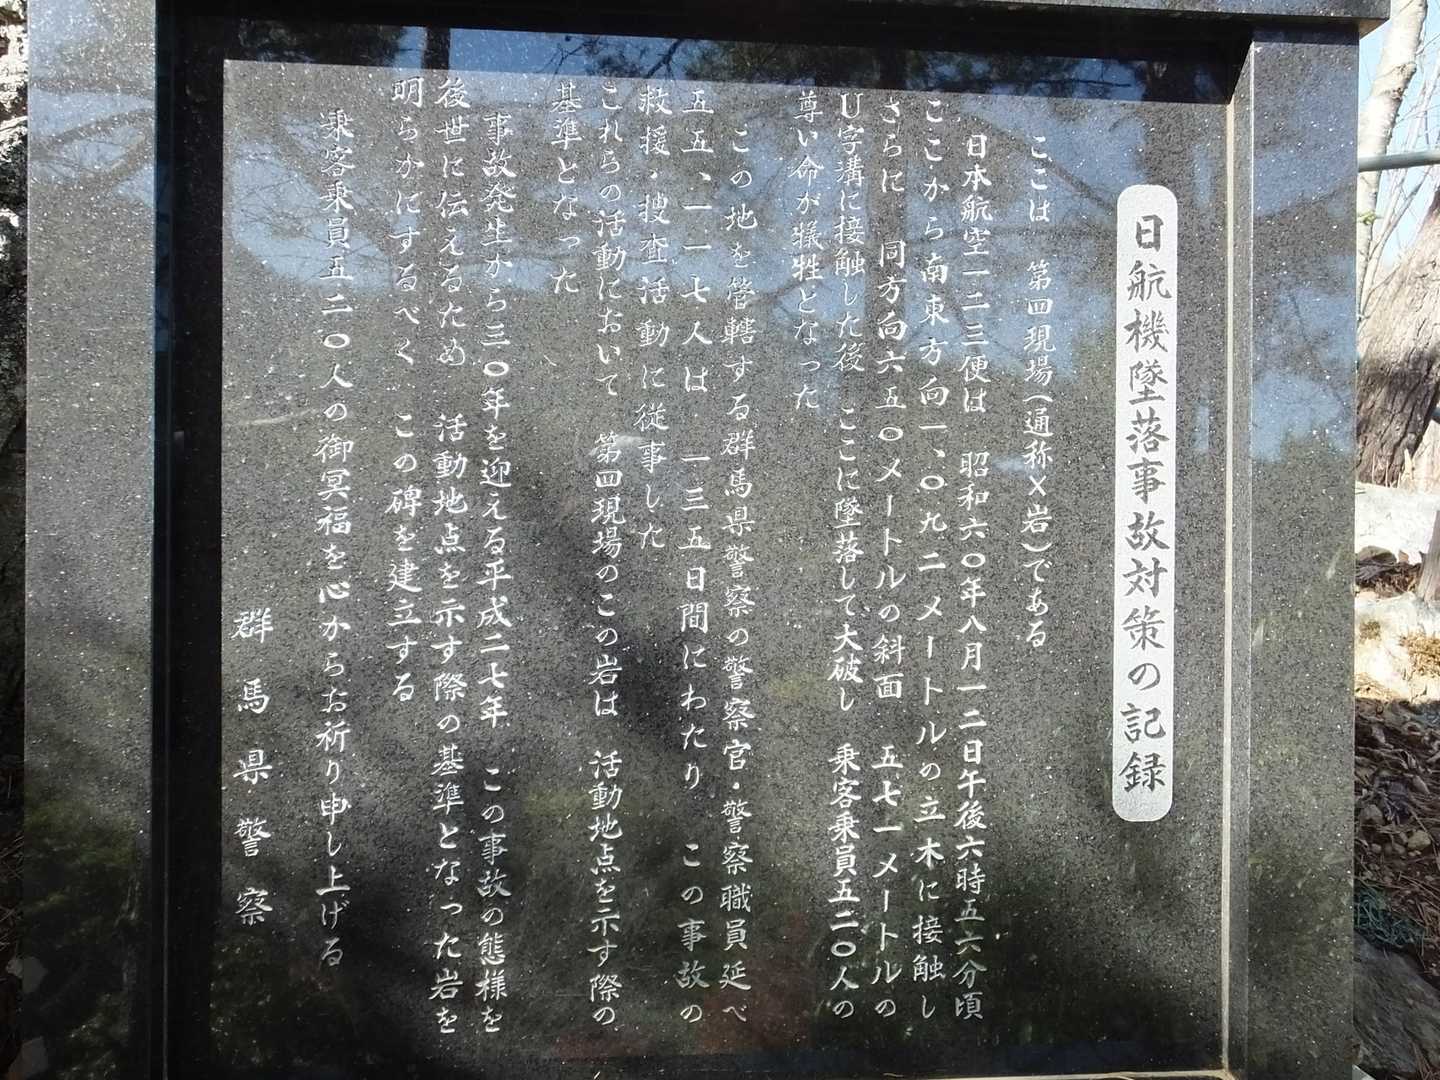 日航機墜落事故対策の記録
ここは　第四現場（通称X岩）である
日本航空一二三便は　昭和六〇年八月一二日午後六時五六分頃
ここから南東方向一、〇九二メートルの立木に接触し
さらに　同方向六五〇メートルの斜面　五七一メートルの
U字溝に接触した後　ここに墜落して大破し　乗客乗員五二〇人の
尊い命が犠牲となった
この地を管轄する群馬県警察の警察官・警察職員延べ
五五、一一七人は　一三五日間にわたり　この事故の
救援・捜査活動に従事した
これらの活動において　第四現場のこの岩は　活動地点を示す際の
基準となった
事故発生から三〇年を迎える平成二七年　この事故の態様を
後世に伝えるため　活動地点を示す際の基準となった岩を
明らかにするべく　この碑を建立する
乗客乗員五二〇人の御冥福を心からお祈り申し上げる
群馬県警察